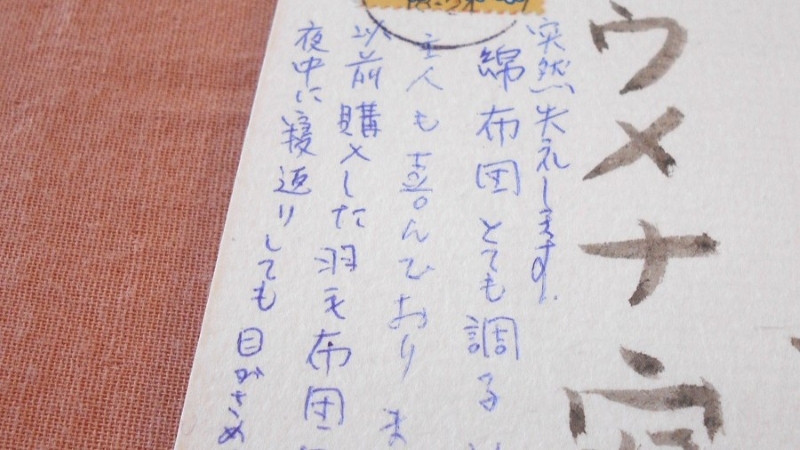 ウメナ
突然失礼します。
綿布団とても調子
主人も喜んでおりま
以前購入した羽毛布団
夜中に寝返りしても
目がさめ